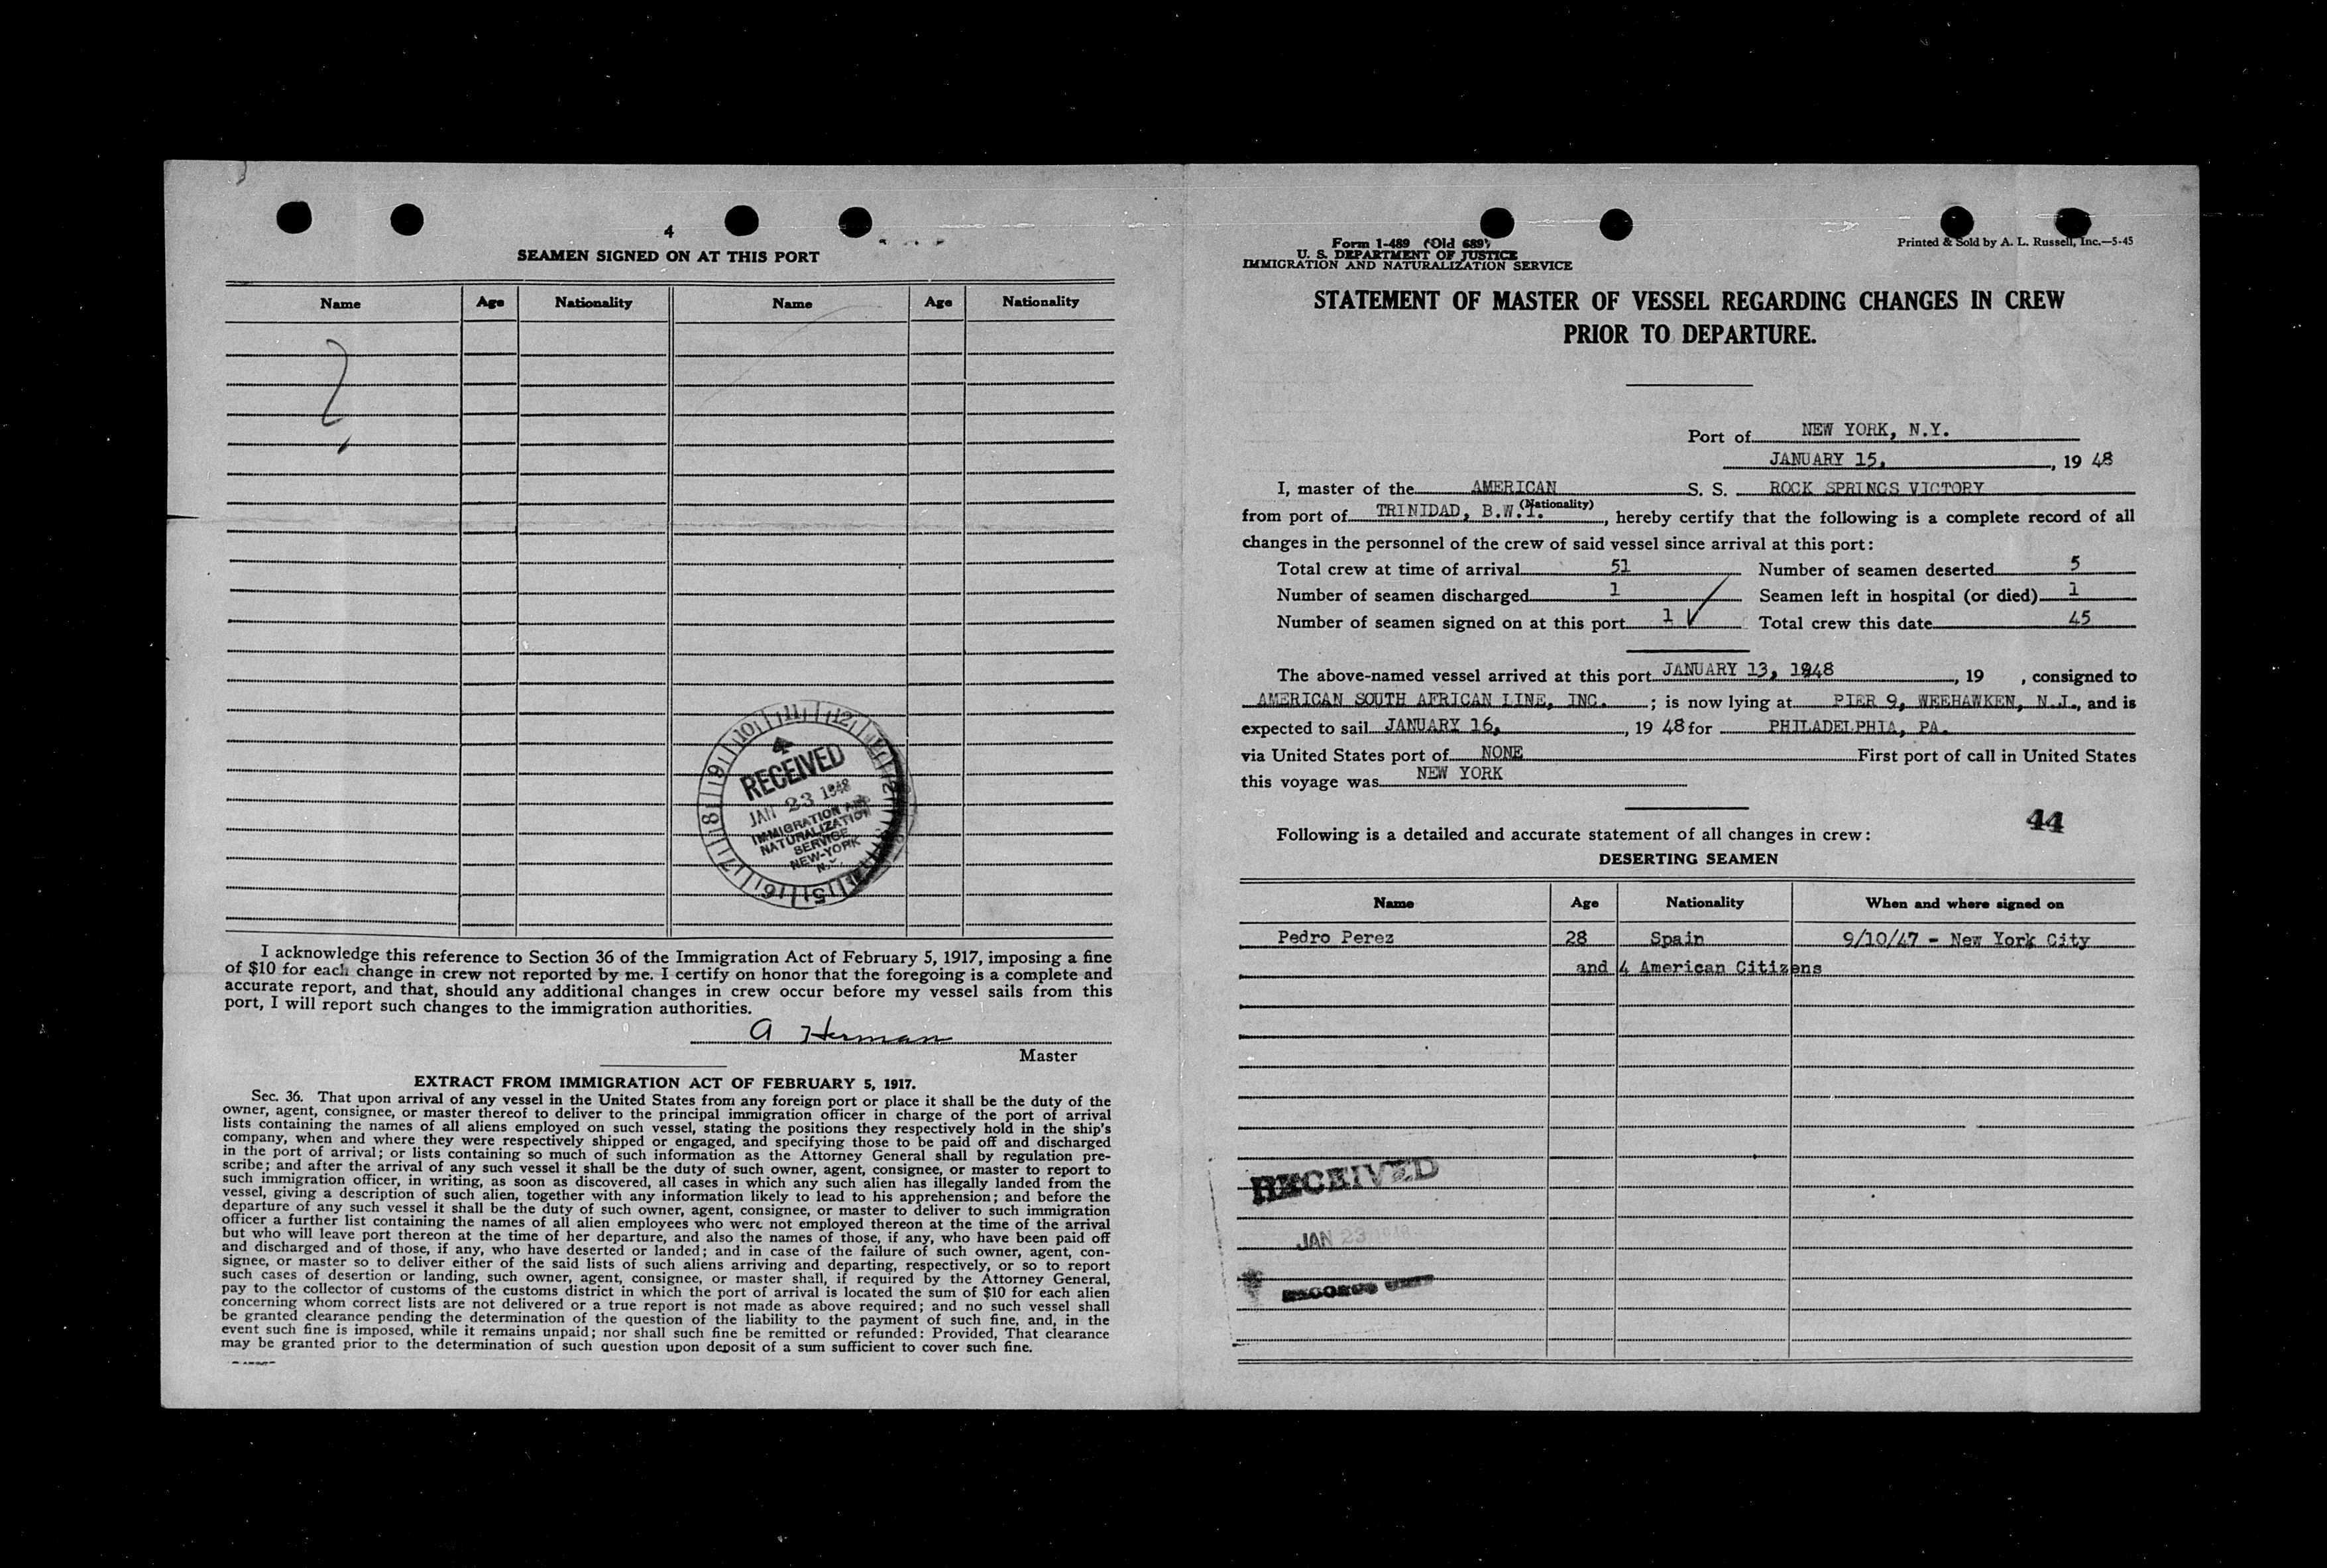 4
SEAMEN SIGNED ON AT THIS PORT
Name Age Nationality Name Age Nationality
RECEIVED
JAN 23 1948
IMMIGRATION AND
NATURALIZATION
SERVICE
NEW-YORK
N.Y.
I acknowledge this reference to Section 36 of the Immigration Act of February 5, 1917, imposing a fine
of $10 for each change in crew not reported by me. I certify on honor that the foregoing is a complete and
accurate report, and that, should any additional changes in crew occur before my vessel sails from this
port, I will report such changes to the immigration authorities.
A Herman
Master
EXTRACT FROM IMMIGRATION ACT OF FEBRUARY 5, 1917.
Sec. 36. That upon arrival of any vessel in the United States from any foreign port or place it shall be the duty of the
owner, agent, consignee, or master thereof to deliver to the principal immigration officer in charge of the port of arrival
lists containing the names of all aliens employed on such vessel, stating the positions they respectively hold in the ship's
company, when and where they were respectively shipped or engaged, and specifying those to be paid off and discharged
in the port of arrival; or lists containing so much of such information as the Attorney General shall by regulation pre-
scribe; and after the arrival of any such vessel it shall be the duty of such owner, agent, consignee, or master to report to
such immigration officer, in writing, as soon as discovered, all cases in which any such alien has illegally landed from the
vessel, giving a description of such alien, together with any information likely to lead to his apprehension; and before the
departure of any such vessel it shall be the duty of such owner, agent, consignee, or master to deliver to such immigration
officer a further list containing the names of all alien employees who were not employed thereon at the time of the arrival
but who will leave port thereon at the time of her departure, and also the names of those, if any, who have been paid off
and discharged and of those, if any, who have deserted or landed; and in case of the failure of such owner, agent, con-
signee, or master so to deliver either of the said lists of such aliens arriving and departing, respectively, or so to report
such cases of desertion or landing, such owner, agent, consignee, or master shall, if required by the Attorney General,
pay to the collector of customs of the customs district in which the port of arrival is located the sum of $10 for each alien
concerning whom correct lists are not delivered or a true report is not made as above required; and no such vessel shall
be granted clearance pending the determination of the question of the liability to the payment of such fine, and, in the
event such fine is imposed, while it remains unpaid; nor shall such fine be remitted or refunded: Provided, That clearance
may be granted prior to the determination of such question upon deposit of a sum sufficient to cover such fine.
Form 1-489 (Old 689)
U. S. DEPARTMENT OF JUSTICE
IMMIGRATION AND NATURALIZATION SERVICE
Printed & Sold by A. L. Russell, Inc.—5-45
STATEMENT OF MASTER OF VESSEL REGARDING CHANGES IN CREW
PRIOR TO DEPARTURE.
Port of NEW YORK, N.Y.
JANUARY 15, , 19 48
I, master of the AMERICAN S. S. ROCK SPRINGS VICTORY
(Nationality)
from port of TRINIDAD, B.W.I. , hereby certify that the following is a complete record of all
changes in the personnel of the crew of said vessel since arrival at this port:
Total crew at time of arrival 51 Number of seamen deserted 5
Number of seamen discharged 1 Seamen left in hospital (or died) 1
Number of seamen signed on at this port 1 ✓ Total crew this date 45
The above-named vessel arrived at this port JANUARY 13, 1948 , 19 , consigned to
AMERICAN SOUTH AFRICAN LINE, INC. ; is now lying at PIER 9, WEEHAWKEN, N.J., and is
expected to sail JANUARY 16, , 19 48 for PHILADELPHIA, PA.
via United States port of NONE First port of call in United States
this voyage was NEW YORK
44
Following is a detailed and accurate statement of all changes in crew:
DESERTING SEAMEN
Name Age Nationality When and where signed on
Pedro Perez 28 Spain 9/10/47 - New York City
and 4 American Citizens
RECEIVED
JAN 23 1948
RECORDS UNIT